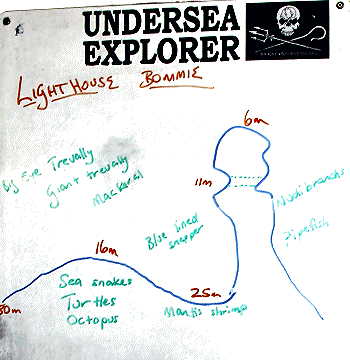 UNDERSEA
EXPLORER
LIGHTHOUSE BOMMIE
6m
Big Eye Trevally
Giant trevally
Mackeral
11m
Nudibranchs
Blue lined
snapper
Pipefish
16m
Sea snakes
Turtles
Octopus
25m
Mantis shrimp
30m